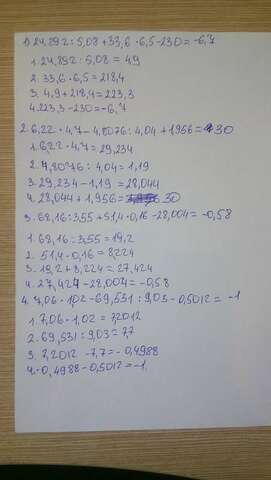 1) 24,892 : 5,08 + 33,6 · 6,5 - 230 = -6,7
1. 24,892 : 5,08 = 4,9
2. 33,6 · 6,5 = 218,4
3. 4,9 + 218,4 = 223,3
4. 223,3 - 230 = -6,7
2. 6,22 · 4,7 - 4,8076 : 4,04 + 1,956 = 30
1. 6,22 · 4,7 = 29,234
2. 4,8076 : 4,04 = 1,19
3. 29,234 - 1,19 = 28,044
4. 28,044 + 1,956 = 30
3. 68,16 : 3,55 + 51,4 · 0,16 - 28,004 = -0,58
1. 68,16 : 3,55 = 19,2
2. 51,4 · 0,16 = 8,224
3. 19,2 + 8,224 = 27,424
4. 27,424 - 28,004 = -0,58
4. 7,06 · 1,02 - 69,531 : 9,03 - 0,5012 = -1
1. 7,06 · 1,02 = 7,2012
2. 69,531 : 9,03 = 7,7
3. 7,2012 - 7,7 = -0,4988
4. -0,4988 - 0,5012 = -1